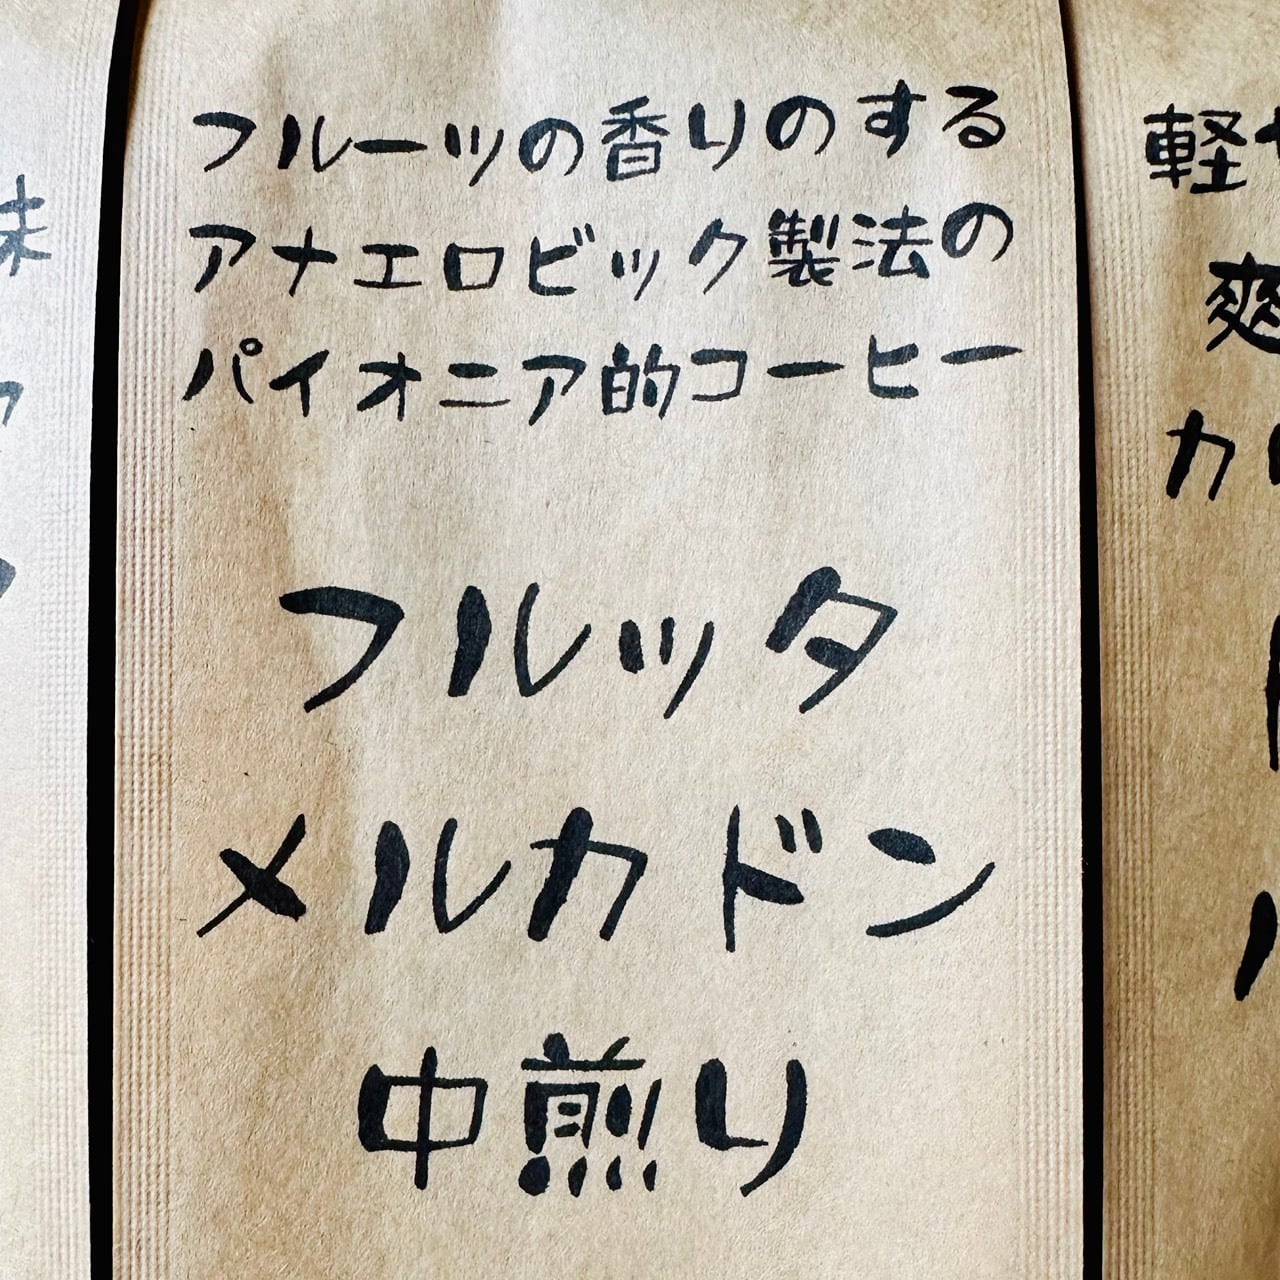 フルーツの香りのする
アナエロビック製法の
パイオニア的コーヒー
フルッタ
メルカドン
中煎り
味
軽
爽
カ